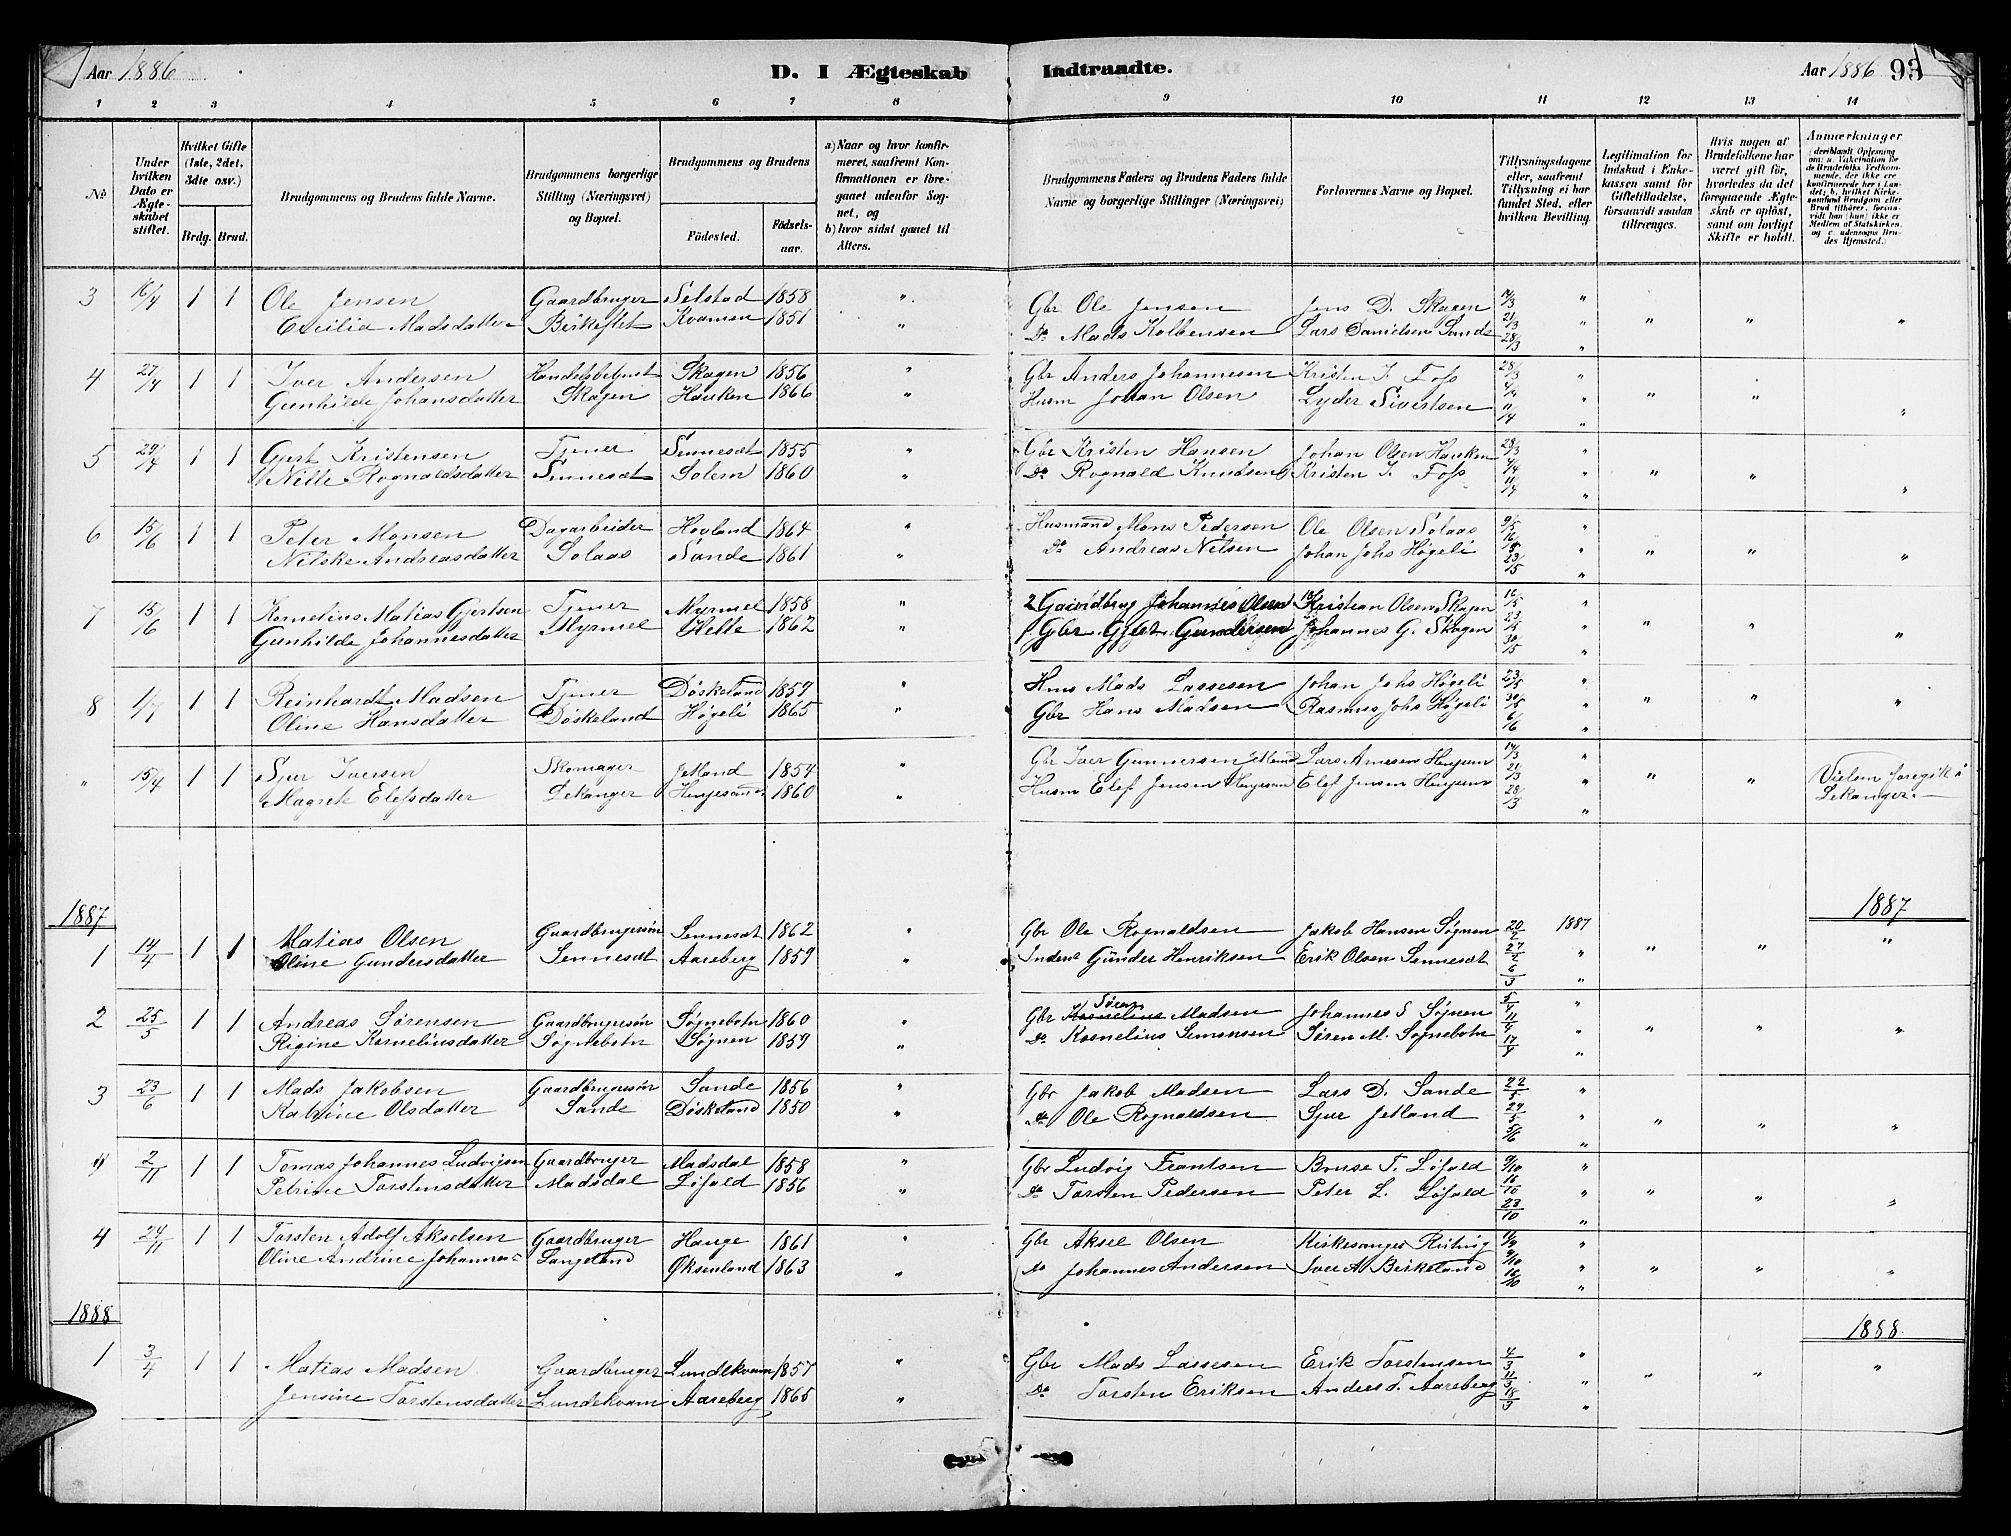 Aar 1886 D. I Ægteskab Indtraadte. Aar 1886 93
1 2 3 4 5 6 7 8 9 10 11 12 13 14
No. | Under hvilken Dato er Ægteskabet stiftet. | Hvilket Gifte (1ste, 2det, 3die osv.) Brdg. Brud. | Brudgommens og Brudens fulde Navne. | Brudgommens borgerlige Stilling (Næringsvei) og Bopæl. | Brudgommens og Brudens Fødested. Fødselsaar. | a) Naar og hvor konfirmeret, saafremt Konfirmationen er foregaaet udenfor Sognet, og b) hvor sidst gaaet til Alters. | Brudgommens Faders og Brudens Faders fulde Navne og borgerlige Stillinger (Næringsvei) | Forlovernes Navne og Bopæl. | Tillysningsdagene eller, saafremt Tillysning ei har fundet Sted, efter hvilken Bevilling. | Legitimation for Indskud i Enkekassen samt for Giftetilladelse, forsaavidt saadan tiltrænges. | Hvis nogen af Brudefolkene har været gift før, hvorledes da det foregaaende Ægteskab er opløst, samt om lovligt Skifte er holdt. | Anmærkninger (deriblandt Oplysning om: a. Vakcination for de Brudefolks Vedkommende, der ikke ere konfirmerede her i Landet; b. hvilket Kirkesamfund Brudgom eller Brud tilhører, forsaavidt han (hun) ikke er Medlem af Statskirken, og c. udensogns Brudes Hjemsted.)
3 16/4 1 1 Ole Jensen Gaardbruger Selstad 1858 " Gbr Ole Jensen Jens D. Skagen 14/3 "
Cecilia Madsdatter Birkeflet Kvamen 1851 " Do Mads Kolbensen Lars Danielsen Sande 21/3 28/3 " " " "
4 27/4 1 1 Iver Andersen Handelsbetjent Skagen 1856 " Gbr Anders Johannesen Kristen J. Foss 28/3 "
Gunhilde Johansdatter Skagen Hauken 1866 " Husm Johan Olsen Lyder Sivertsen 4/4 11/4 " " " "
5 29/4 1 1 Gjert Kristensen Tjener Sennesæt 1855 " Gbr Kristen Hansen Johan Olsen Hauken 28/3 "
Nille Rognaldsdatter Sennesæt Solem 1860 " Do Rognald Knudsen Kristen J. Foss 4/4 11/4 " " " "
6 15/6 1 1 Peter Monsen Dagarbeider Hovland 1864 " Husmand Mons Pedersen Ole Olsen Solaas 9/5 "
Nilske Andreasdatter Solaas Sande 1861 " Do Andreas Nilsen Johan Johs Høgeli 16/5 23/5 " " " "
7 15/6 1 1 Kornelius Matias Gjertsen Tjener Myrmel 1858 " 2 Gaardbrug Johannes Olsen Kristian Olsen Skagen 16/5 "
Gunhilde Johannesdatter Myrmel Helle 1862 " 1 Gbr Gjert Gundersen Johannes G. Skagen 23/5 30/5 " " " "
8 1/7 1 1 Reinhardt Madsen Tjener Døskeland 1859 " Hus Mads Lassesen Johan Johs Høgeli 23/5 "
Oline Hansdatter Døskeland Høgeli 1865 " Gbr Hans Madsen Rasmus Johs Høgeli 30/5 6/6 " " " "
" 15/4 1 1 Sjur Iversen Skomager Jetland 1854 " Gbr Iver Gunnersen Lars Arnesen Henjum 14/3 "
Magrete Elefsdatter Lekanger Henjesand 1860 " Husm Elef Jensen Henjesand Elef Jensen Henjum 21/3 28/3 " " " Vielsen foregik i Lekanger.
1887 1887
1 14/4 1 1 Matias Olsen Gaardbrugersøn Sennesæt 1862 " Gbr Ole Rognaldsen Jakob Hansen Søgnen 20/2 1887
Oline Gundersdatter Sennesæt Aareberg 1859 " Inders Günder Henriksen Erik Olsen Sennesæt 27/2 6/3 " " " "
2 25/5 1 1 Andreas Sørensen Gaardbrugersøn Søgnebotn 1860 " Gbr Søren Madsen Johannes S Søgnen 5/4 "
Rigine Kornelinsdatter Søgnebotn Søgnen 1859 " Do Kornelius Simonsen Søren M. Søgnebotn 11/4 17/4 " " " "
3 23/6 1 1 Mads Jakobsen Gaardbrugersøn Sande 1856 " Gbr Jakob Madsen Lars D. Sande 22/5 "
Katrine Olsdatter Sande Døskeland 1850 " Do Ole Rognaldsen Sjur Jetland 29/5 5/6 " " " "
4 2/11 1 1 Tomas Johannes Ludvigsen Gaardbruger Madsdal 1858 " Gbr Ludvig Frantsen Bruse T. Løfald 9/10 "
Petrine Torstensdatter Madsdal Løfald 1856 " Do Torsten Pedersen Peter L. Løfald 16/10 23/10 " " " "
4 24/11 1 1 Torsten Adolf Akselsen Gaardbruger Hauge 1861 " Gbr Aksel Olsen Kirkesanger Risting "
Oline Andrine Johannes= Langeland Øksenland 1863 " Do Johannes Andersen Iver A Birkeland 9/10 16/10 " " " "
1888 1888.
1 3/4 1 1 Matias Madsen Gaardbruger Lundekvam 1857 " Gbr Mads Lassesen Erik Torstensen 4/3 "
Jensine Torstensdatter Lundekvam Aareberg 1865 " Do Torsten Eriksen Anders T. Aareberg 11/3 18/3 " " " "